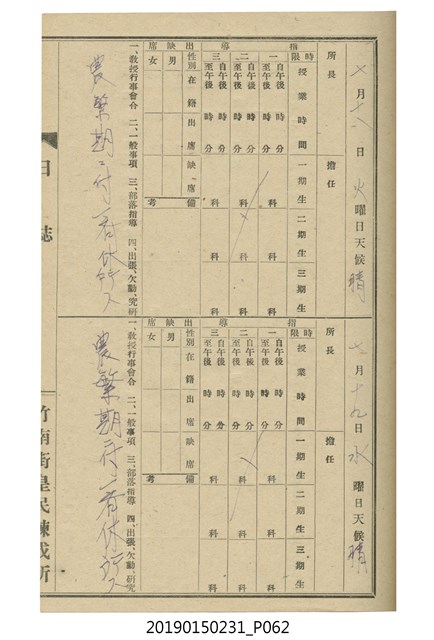 七月十八日 火曜日 天候 晴
所長 擔任
時限 授業時間 一期生 二期生 三期生
指導
一 自午後 時 分 至午後 時 分 科 科 科
二 自午後 時 分 至午後 時 分 科 科 科
三 自午後 時 分 至午後 時 分 科 科 科
出席缺席
性別 在籍 出席 缺席 備考
男
女
一、教授行事會合 二、一般事項 三、部落指導 四、出張、欠勤、究研
農繁期ニ付
七月十九日 水曜日 天候 晴
所長 擔任
時限 授業時間 一期生 二期生 三期生
指導
一 自午後 時 分 至午後 時 分 科 科 科
二 自午後 時 分 至午後 時 分 科 科 科
三 自午後 時 分 至午後 時 分 科 科 科
出席缺席
性別 在籍 出席 缺席 備考
男
女
一、教授行事會合 二、一般事項 三、部落指導 四、出張、欠勤、究研
農繁期ニ付
日誌
竹南街皇民鍊成所
20190150231_P062